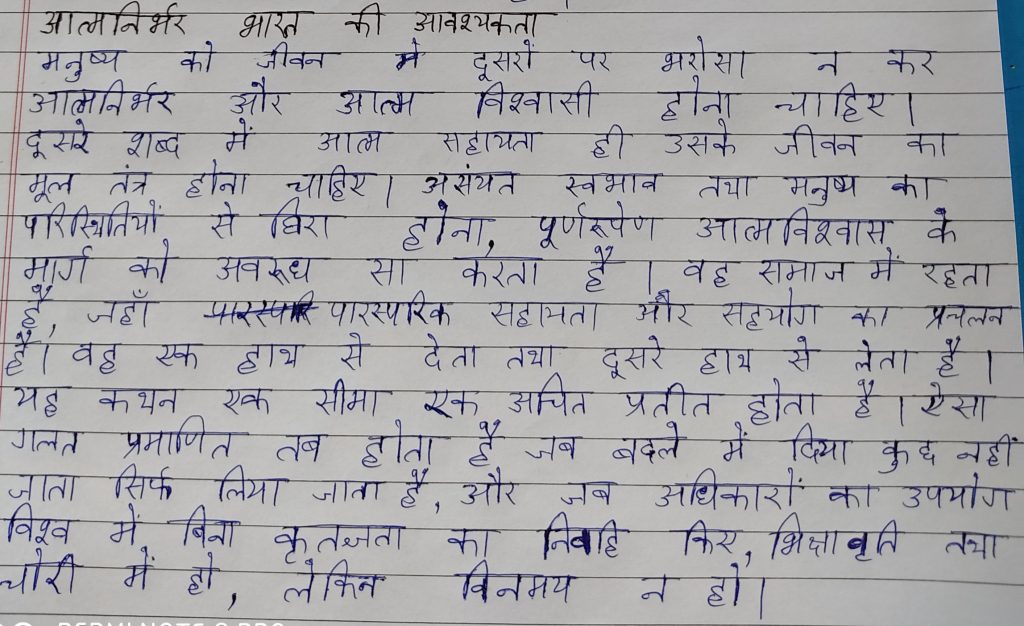 आत्मनिर्भर भारत की आवश्यकता
मनुष्य को जीवन मे दूसरों पर भरोसा न कर
आत्मनिर्भर और आत्म विश्वासी होना चाहिए।
दूसरे शब्द में आत्म सहायता ही उसके जीवन का
मूल तंत्र होना चाहिए। असंयत स्वभाव तथा मनुष्य का
परिस्थितियों से घिरा होना, पूर्णरूपेण आत्मविश्वास के
मार्ग को अवरूध सा करता है। वह समाज में रहता
है, जहाँ पारस्परिक सहायता और सहयोग का प्रचलन
है। वह एक हाथ से देता तथा दूसरे हाथ से लेता है।
यह कथन एक सीमा एक उचित प्रतीत होता है। ऐसा
गलत प्रमाणित तब होता है जब बदले में दिया कुछ नहीं
जाता सिर्फ लिया जाता है, और जब अधिकारों का उपयोग
विश्व में बिना कृतज्ञता का निर्वाह किए, भिक्षावृति तथा
चोरी में हो, लेकिन विनमय न हो।